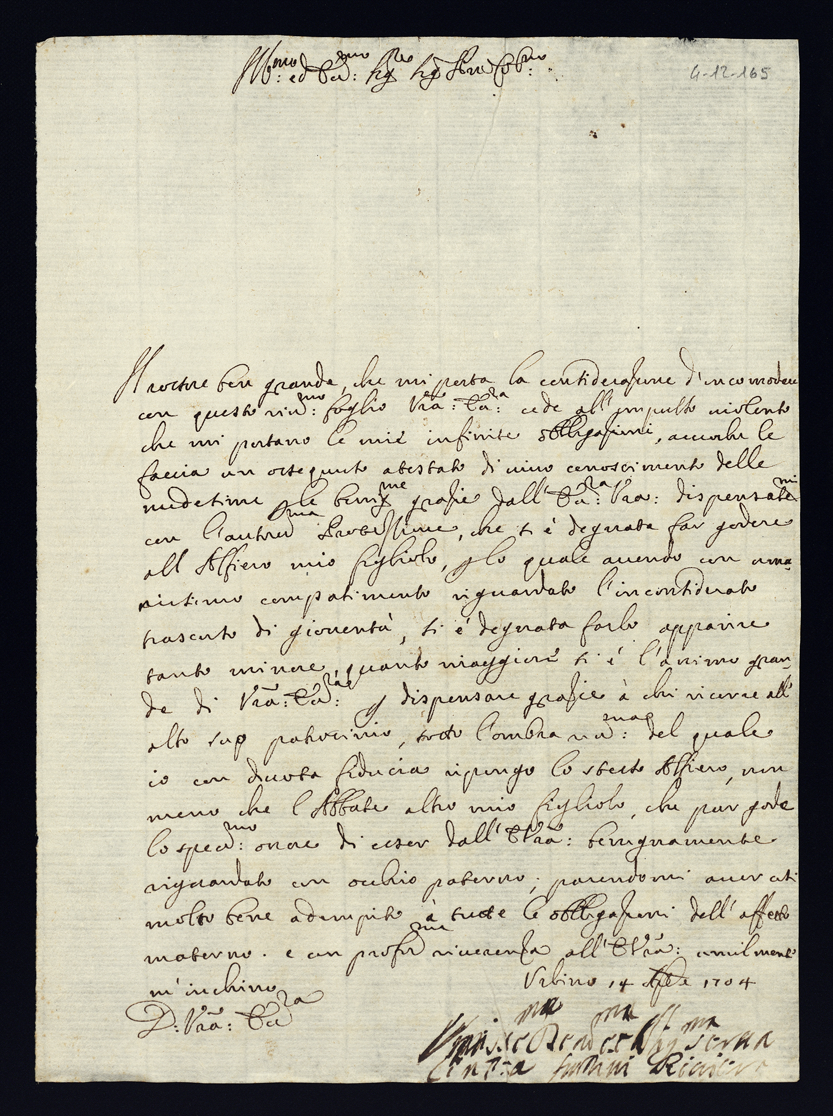 Ill.mo ed Ecc.mo Sig.re Sig.r
4-12-165
Il rossore ben grande, che mi porta la considerazione d'incomodare
con questo foglio Vrã: Ecc.za cede all'impulso violento
che mi portano le mie infinite obbligazioni, accioche le
faccia un ossequioso atestato di vivo conoscimento delle
medesime le benig.me grazie dall'Ecc.za Vrã: dispensatemi
con l'autorev.ma Protezzione, che si è degnata far godere
all'Alfiero mio figliolo, lo quale avendo con uma-
nissimo compatimento riguardato l'inconsiderato
trascorso di gioventù, si è degnata farlo apparire
tanto minore, quanto maggiore si è l'animo gran-
de di Vrã: Ecc.za dispensare grazie à chi ricorre all'
alto suo patrocinio, sotto l'ombra del quale
io con divota fiducia ripongo lo stesso Alfiero, non
meno che l'Abbate altro mio figliolo, che pur gode
lo spec.mo onore di esser dall'E. Vrã: benignamente
riguardato con occhio paterno; parendomi aver così
molto bene adempito à tutte le obbligazioni dell'affetto
materno. e con prof.ma riverenza all'E. Vrã: umilmente
m'inchino
Urbino 14 1704
D: Vrã: Ecc.za